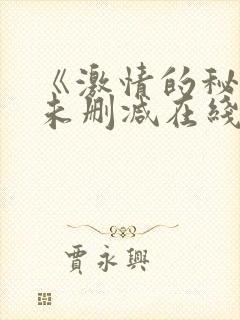 《激情的秘
未删减在綫
賈永興